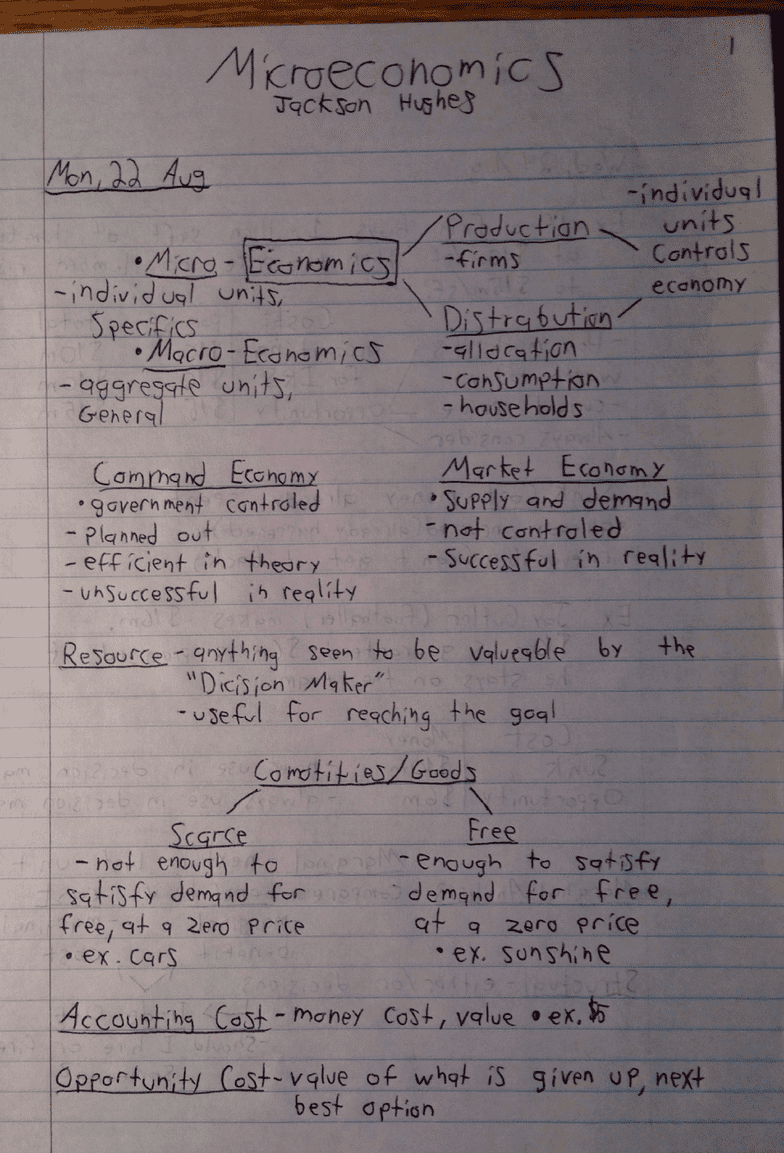 1
Microeconomics
Jackson Hughes
Mon, 22 Aug
• Micro - Economics
- individual units,
Specifics
• Macro - Economics
- aggregate units,
General
Production
- firms
Distrabution
- allocation
- consumption
- households
- individual
units
Controls
economy
Command Economy
• government controled
- Planned out
- efficient in theory
- unsuccessful in reality
Market Economy
• Supply and demand
- not controled
- Successful in reality
Resource - anything seen to be valueable by the
"Dicision Maker"
- useful for reaching the goal
Comotities/Goods
Scarce
- not enough to
satisfy demand for
free, at a zero price
• ex. cars
Free
- enough to satisfy
demand for free,
at a zero price
• ex. sunshine
Accounting Cost - money cost, value • ex. $5
Opportunity Cost - value of what is given up, next
best option